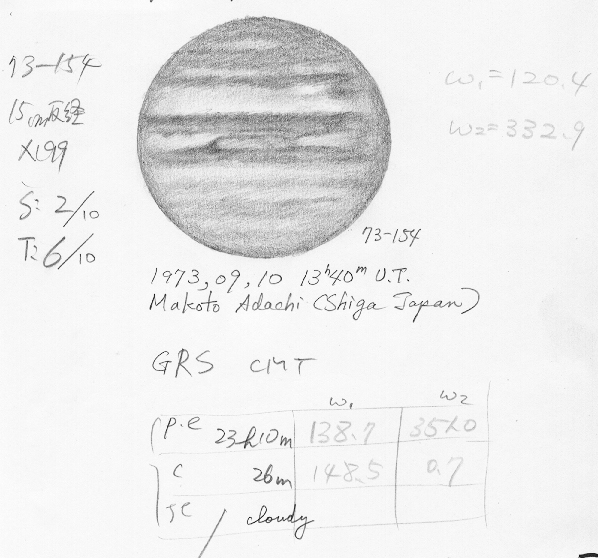 73-154
15cm反経
×199
S: 2/10
T: 6/10
ω1=120.4
ω2=332.9
73-154
1973,09,10 13h40m U.T.
Makoto Adachi (Shiga Japan)
GRS CMT
ω1 ω2
P.e 23h10m 138.7
C 26m 148.5 0.7
cloudy